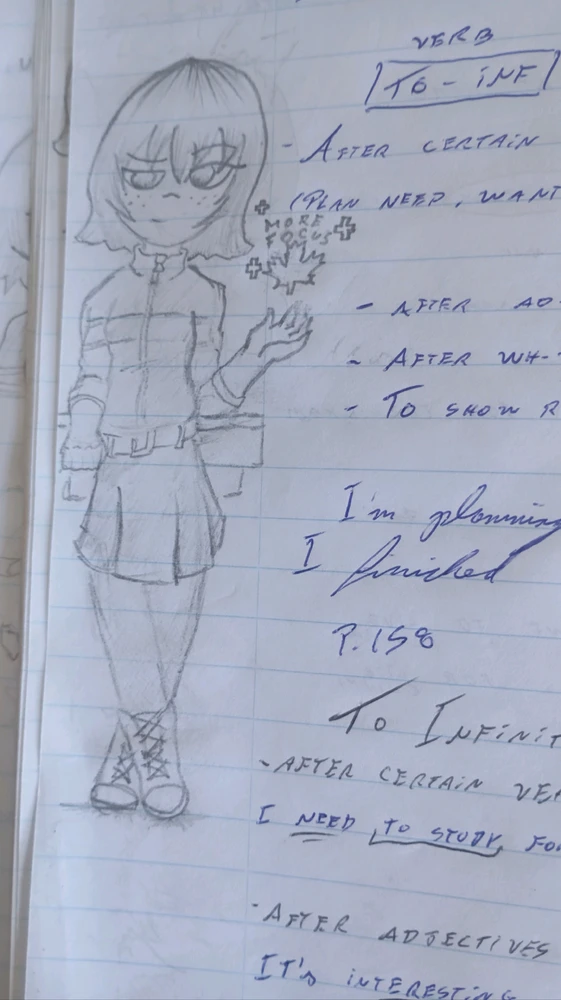 VERB
TO - INF
- AFTER CERTAIN
(PLAN NEED, WANT
MORE
FOCUS
- AFTER AD
- AFTER WH-
- TO SHOW R
I'm planning
I finished
P. 158
TO INFINIT
- AFTER CERTAIN VER
I NEED TO STUDY FO
- AFTER ADJECTIVES
IT'S INTERESTING